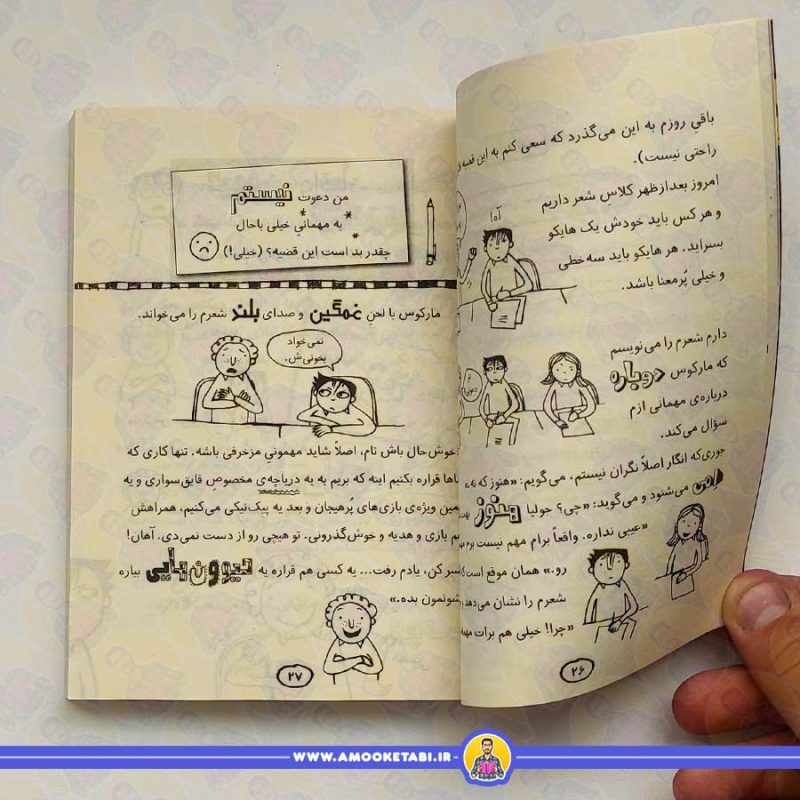 باقیِ روزم به این می‌گذرد که سعی کنم به این قضیه
راحتی نیست).
امروز بعدازظهر کلاسِ شعر داریم
و هر کس باید خودش یک هایکو
بسراید. هر هایکو باید سه‌خطی
و خیلی پُرمعنا باشد.
آه!
دارم شعرم را می‌نویسم
که مارکوس دوباره
درباره‌ی مهمانی ازم
سؤال می‌کند.
جوری‌که انگار اصلاً نگران نیستم، می‌گویم: «هنوز که نه.»
اِمی می‌شنود و می‌گوید: «چی؟ جولیا هنوز
«عیبی نداره. واقعاً برام مهم نیست
رو.» همان موقع است
شعرم را نشان می‌دهد
«چرا! خیلی هم برات
۲۶
من دعوت نیستم
به مهمانیِ خیلی باحال
چقدر بد است این قضیه؟ (خیلی!)
مارکوس با لحنِ غمگین و صدای بلند شعرم را می‌خواند.
نمی‌خواد
بخونی‌ش.
خوش‌حال باش تام، اصلاً شاید مهمونیِ مزخرفی باشه. تنها کاری که
قراره بکنیم اینه که بریم به یه دریاچه‌ی مخصوصِ قایق‌سواری و یه
زمین ویژه‌ی بازی‌های پُرهیجان و بعد یه پیک‌نیکی می‌کنیم، همراهش
بازی و هدیه و خوش‌گذرونی. تو هیچی رو از دست نمی‌دی. آهان!
صبر کن، یادم رفت... یه کسی هم قراره یه حیوون‌هایی بیاره
نشونمون بده.»
۲۷
WWW.AMOOKETABI.IR